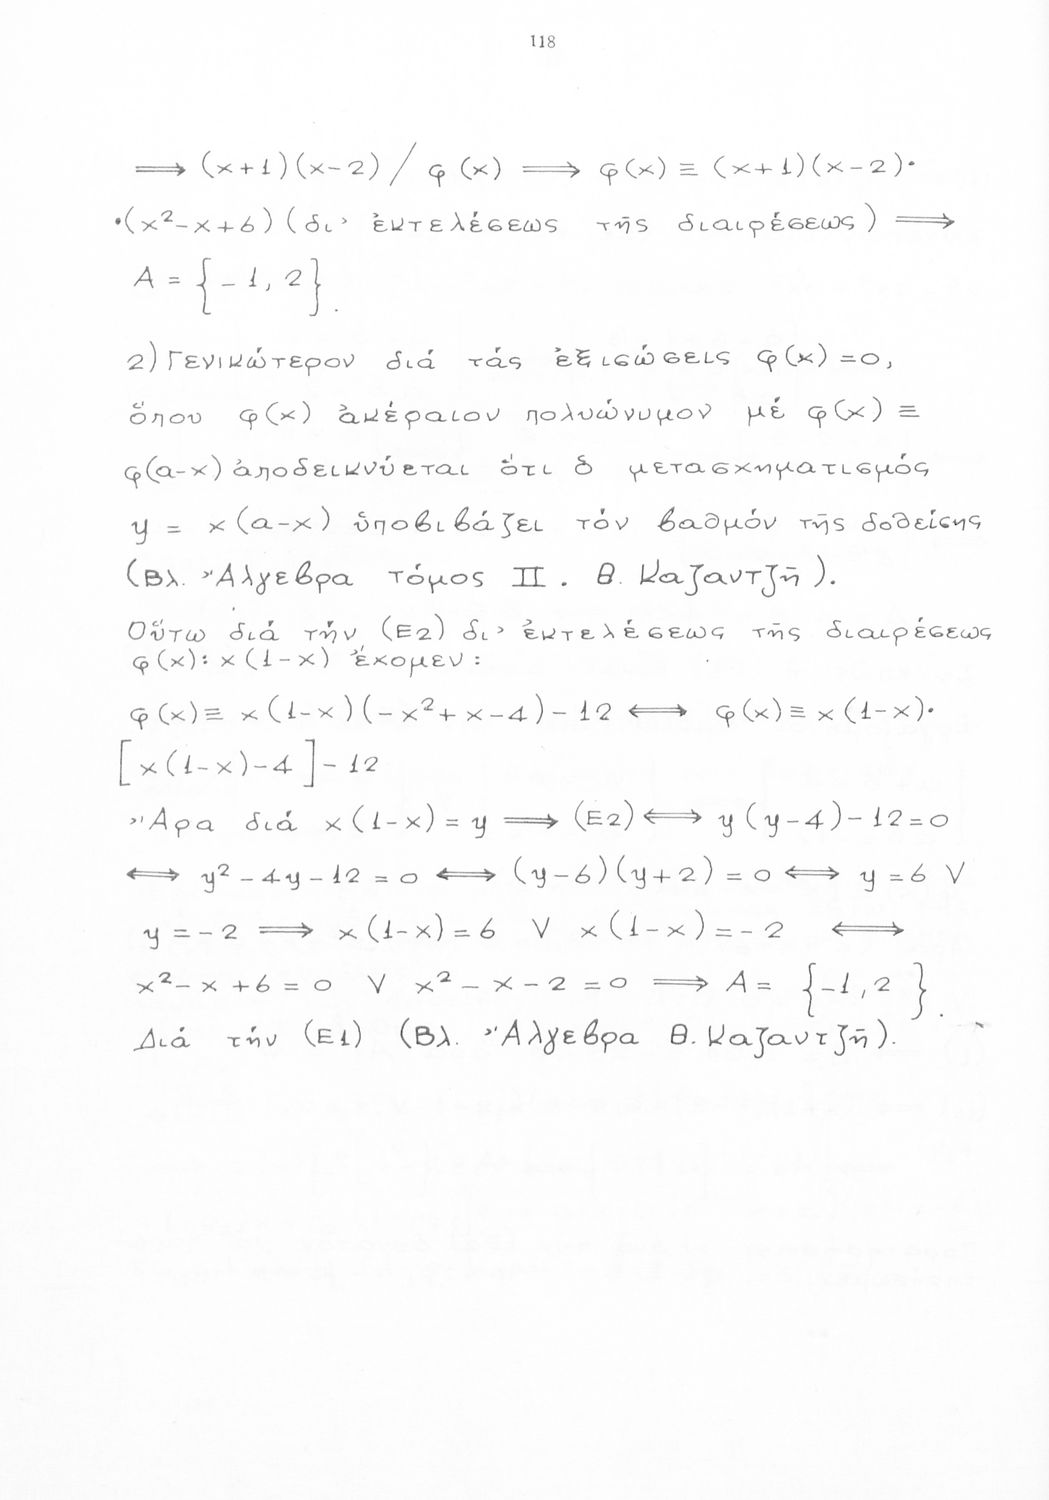 118
⟹ (x+1)(x-2) / φ(x) ⟹ φ(x) ≡ (x+1)(x-2)·
·(x²-x+6) (δι' ἐκτελέσεως τῆς διαιρέσεως) ⟹
A = {-1, 2}.
2) Γενικώτερον διά τάς ἐξισώσεις φ(x)=0,
ὅπου φ(x) ἀκέραιον πολυώνυμον μέ φ(x) ≡
φ(a-x) ἀποδεικνύεται ὅτι ὁ μετασχηματισμός
y = x(a-x) ὑποβιβάζει τόν βαθμόν τῆς δοθείσης
(Βλ. Ἄλγεβρα τόμος II. Θ. Καζαντζῆ).
Οὕτω διά τήν (E2) δι' ἐκτελέσεως τῆς διαιρέσεως
φ(x): x(1-x) ἔχομεν:
φ(x) ≡ x(1-x)(-x²+x-4)-12 ⟺ φ(x) ≡ x(1-x)·
[x(1-x)-4]-12
Ἄρα διά x(1-x)=y ⟹ (E2) ⟺ y(y-4)-12=0
⟺ y²-4y-12=0 ⟺ (y-6)(y+2)=0 ⟺ y=6 V
y=-2 ⟹ x(1-x)=6 V x(1-x)=-2 ⟺
x²-x+6=0 V x²-x-2=0 ⟹ A= {-1,2}.
Διά τήν (E1) (Βλ. Ἄλγεβρα Θ. Καζαντζῆ).